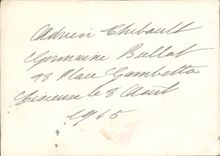 Adrien Thibault
Germaine Bullot
18 Place Gambetta
le 8 Août
1965